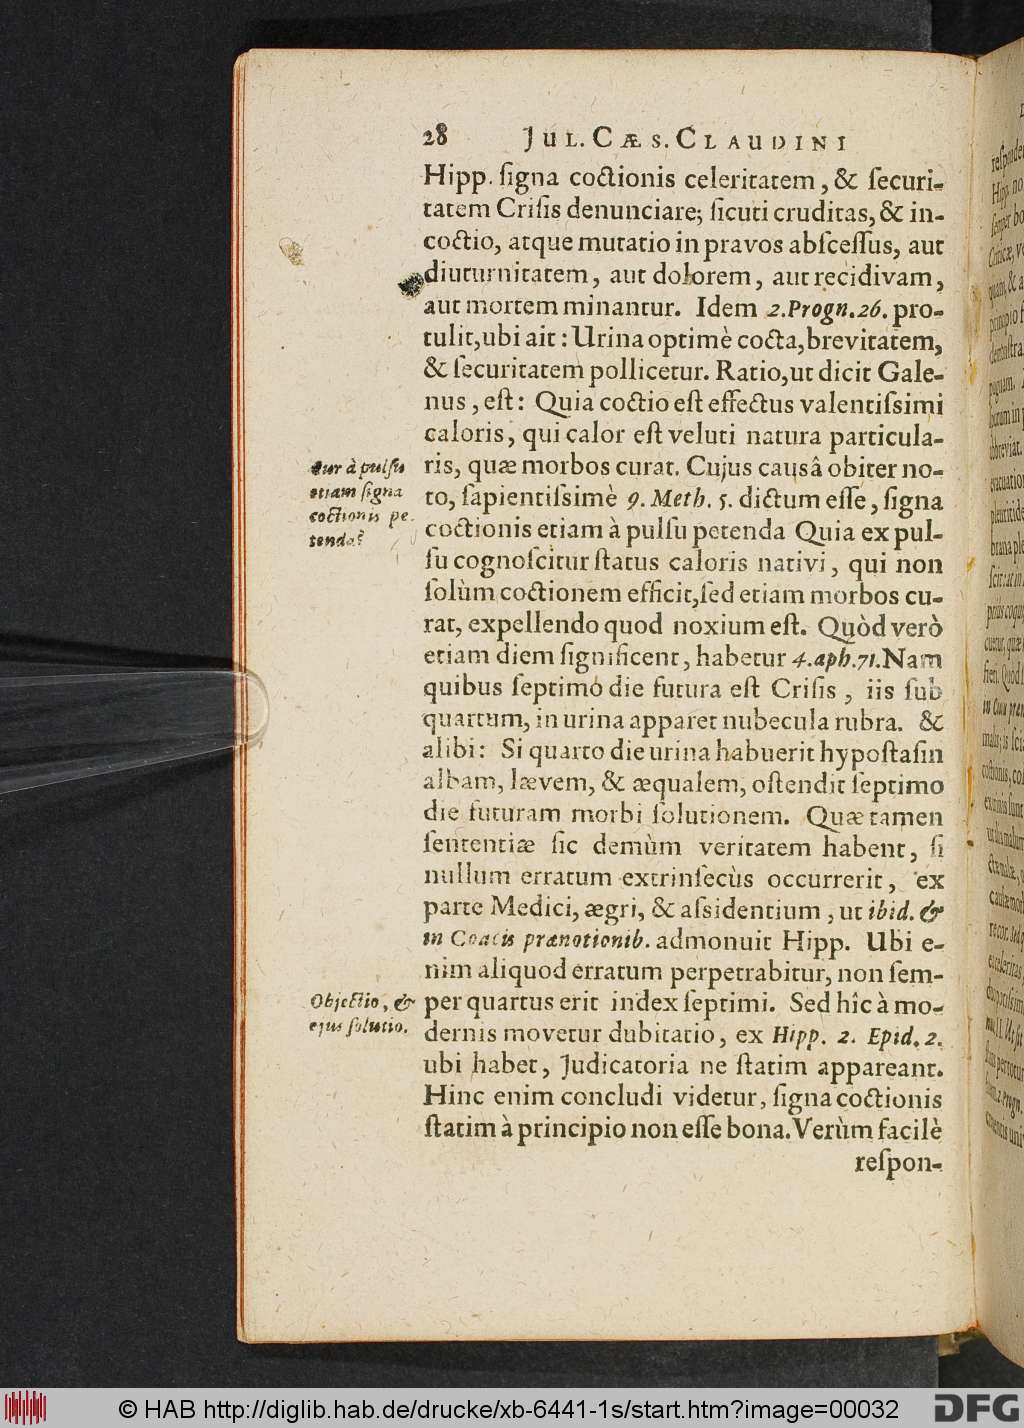 28 JUL. CÆS. CLAUDINI
Hipp. ſigna coctionis celeritatem, & ſecuri-
tatem Criſis denunciare; ſicuti cruditas, & in-
coctio, atque mutatio in pravos abſceſſus, aut
diuturnitatem, aut dolorem, aut recidivam,
aut mortem minantur. Idem 2. Progn. 26. pro-
tulit, ubi ait: Urina optimè cocta, brevitatem,
& ſecuritatem pollicetur. Ratio, ut dicit Gale-
nus, eſt: Quia coctio eſt effectus valentiſsimi
caloris, qui calor eſt veluti natura particula-
ris, quæ morbos curat. Cujus causâ obiter no-
to, ſapientiſsimè 9. Meth. 5. dictum eſſe, ſigna
coctionis etiam à pulſu petenda Quia ex pul-
ſu cognoſcitur ſtatus caloris nativi, qui non
ſolùm coctionem efficit, ſed etiam morbos cu-
rat, expellendo quod noxium eſt. Quòd verò
etiam diem ſignificent, habetur 4. aph. 71. Nam
quibus ſeptimo die futura eſt Criſis, iis ſub
quartum, in urina apparet nubecula rubra. &
alibi: Si quarto die urina habuerit hypoſtaſin
albam, lævem, & æqualem, oſtendit ſeptimo
die futuram morbi ſolutionem. Quæ tamen
ſententiæ ſic demùm veritatem habent, ſi
nullum erratum extrinſecùs occurrerit, ex
parte Medici, ægri, & aſsidentium, ut ibid. &
in Coacis prænotionib. admonuit Hipp. Ubi e-
nim aliquod erratum perpetrabitur, non ſem-
per quartus erit index ſeptimi. Sed hîc à mo-
dernis movetur dubitatio, ex Hipp. 2. Epid. 2.
ubi habet, Judicatoria ne ſtatim appareant.
Hinc enim concludi videtur, ſigna coctionis
ſtatim à principio non eſſe bona. Verùm facilè
reſpon-
Cur à pulſu
etiam ſigna
coctionis pe-
tenda?
Objectio, &
ejus ſolutio.
© HAB http://diglib.hab.de/drucke/xb-6441-1s/start.htm?image=00032
DFG